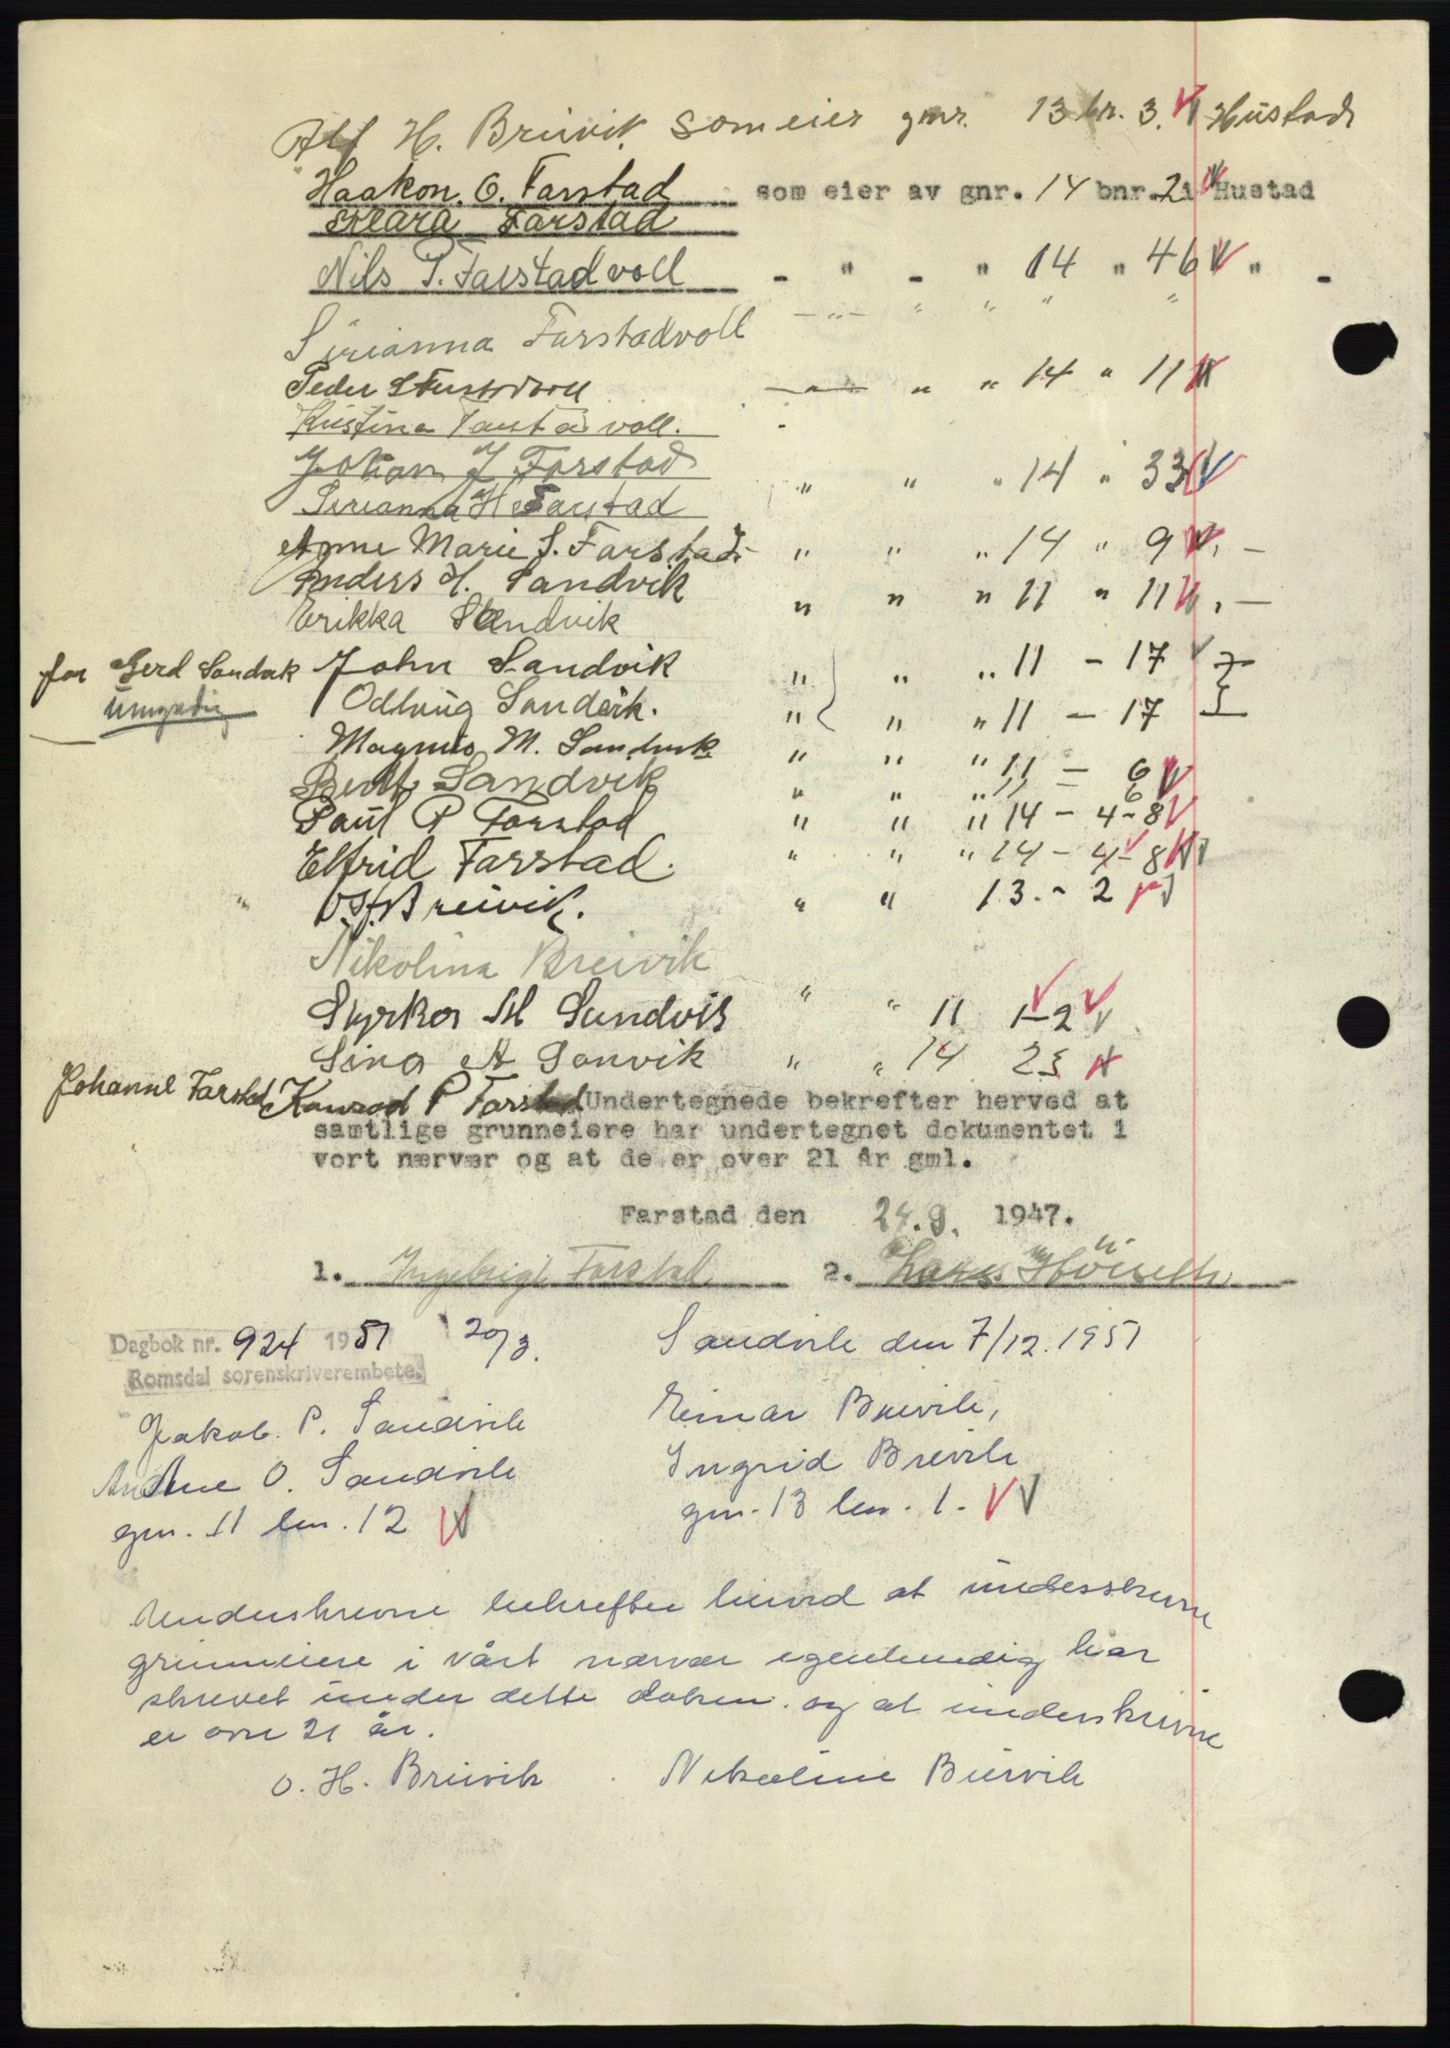 Alf H. Breivik som eier gnr. 13 br. 3. Hustad
Haakon. O. Farstad som eier av gnr. 14 bnr. 2 i Hustad
Klara Farstad
Nils P. Farstadvoll - " - " 14 " 46 " -
Sirianna Farstadvoll - " - " " " "
Peder Farstadvoll - " - " " 14 " 11
Kristina Farstadvoll. -
Johan J Farstad " " " 14 " 33
Sirianna H Farstad
Anne Marie S. Farstad - " " " 14 " 9 , -
Anders H. Sandvik " " " 11 " 11 , -
Erikka Sandvik
for Gerd Sandvik John Sandvik " " " 11 - 17
umyndig Odlaug Sandvik. " " " 11 - 17
Magnus M. Sandvik " " " 11 - 6
Berit Sandvik " " " 11 6
Paul P Farstad " " " 14 - 4 - 8
Elfrid Farstad. " " " 14 - 4 - 8
O. H. Breivik. " " 13. - 2
Nikolina Breivik
Syrker M Sandvik " " 11 1-2
Sina A Sanvik " " 14 25
Johanne Farstad Konrad P Farstad Undertegnede bekrefter herved at
samtlige grunneiere har undertegnet dokumentet i
vort nærvær og at de er over 21 år gml.
Farstad den 24.9. 1947.
1. Ingebrigt Farstad 2. Lars
Dagbok nr. 924 1951 20/3.
Romsdal sorenskriverembete.
Sandvik den 7/12.1951
Jakob. P. Sandvik
Anne O. Sandvik
gnr. 11 bnr. 12
Einar Breivik,
Ingrid Breivik
gnr. 13 bnr. 1.
Underskrevne bekrefter hervd at underskrevne
grunneiere i vårt nærvær egenhendig har
skrevet under dette dokum. og at underskrevne
er over 21 år.
O. H. Breivik Nikoline Breivik